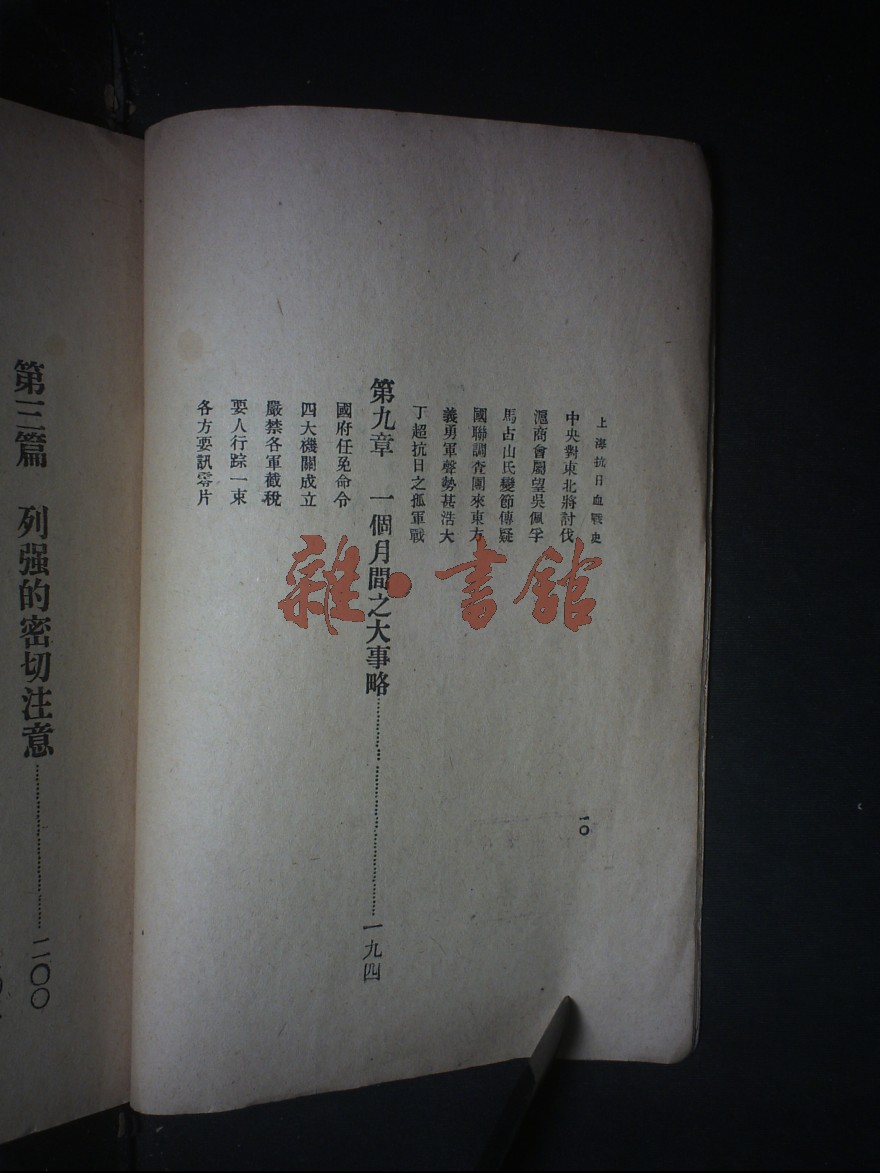 上海抗日血戰史
中央對東北將討伐
滬商會屬望吳佩孚
馬占山氏變節傳疑
國聯調查團來東方
義勇軍聲勢甚浩大
丁超抗日之孤軍戰
第九章 一個月間之大事略……一九四
國府任免命令
四大機關成立
嚴禁各軍截稅
要人行踪一束
各方要訊零片
一〇
第三篇 列强的密切注意……二〇〇
雜·書館